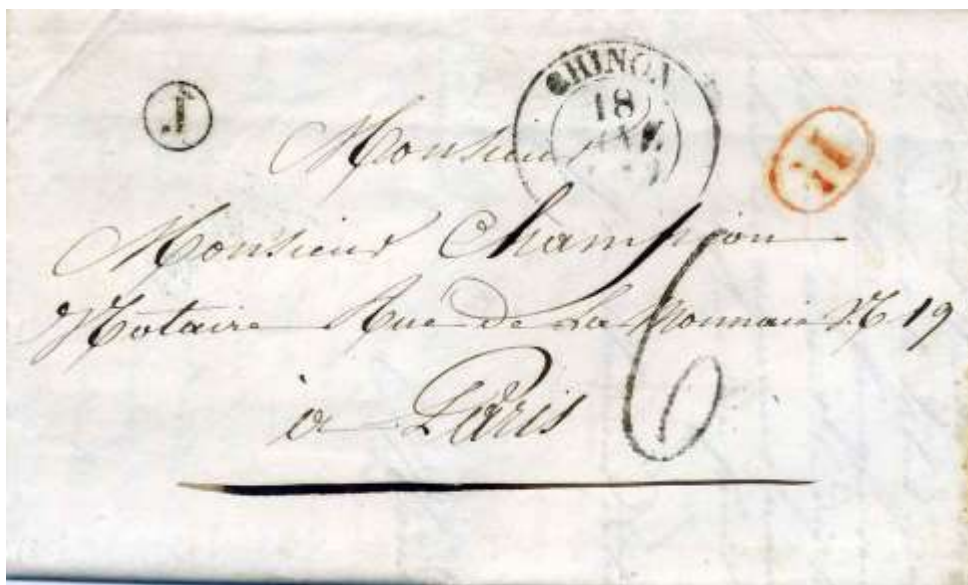 J
CHINON
18
JANV.
1D
Monsieur
Monsieur Champion
Notaire Rue de La Monnaie N 19
à Paris
6